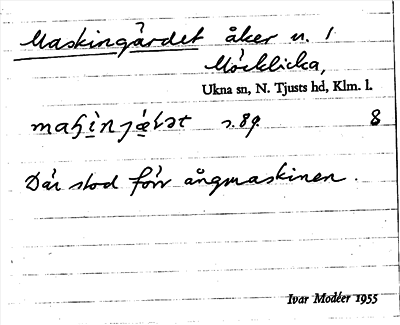 Maskingärdet åker n. 1
Möcklicka,
Ukna sn, N. Tjusts hd, Klm. l.
s. 89. 8
Där stod förr ångmaskinen.
Ivar Modéer 1955